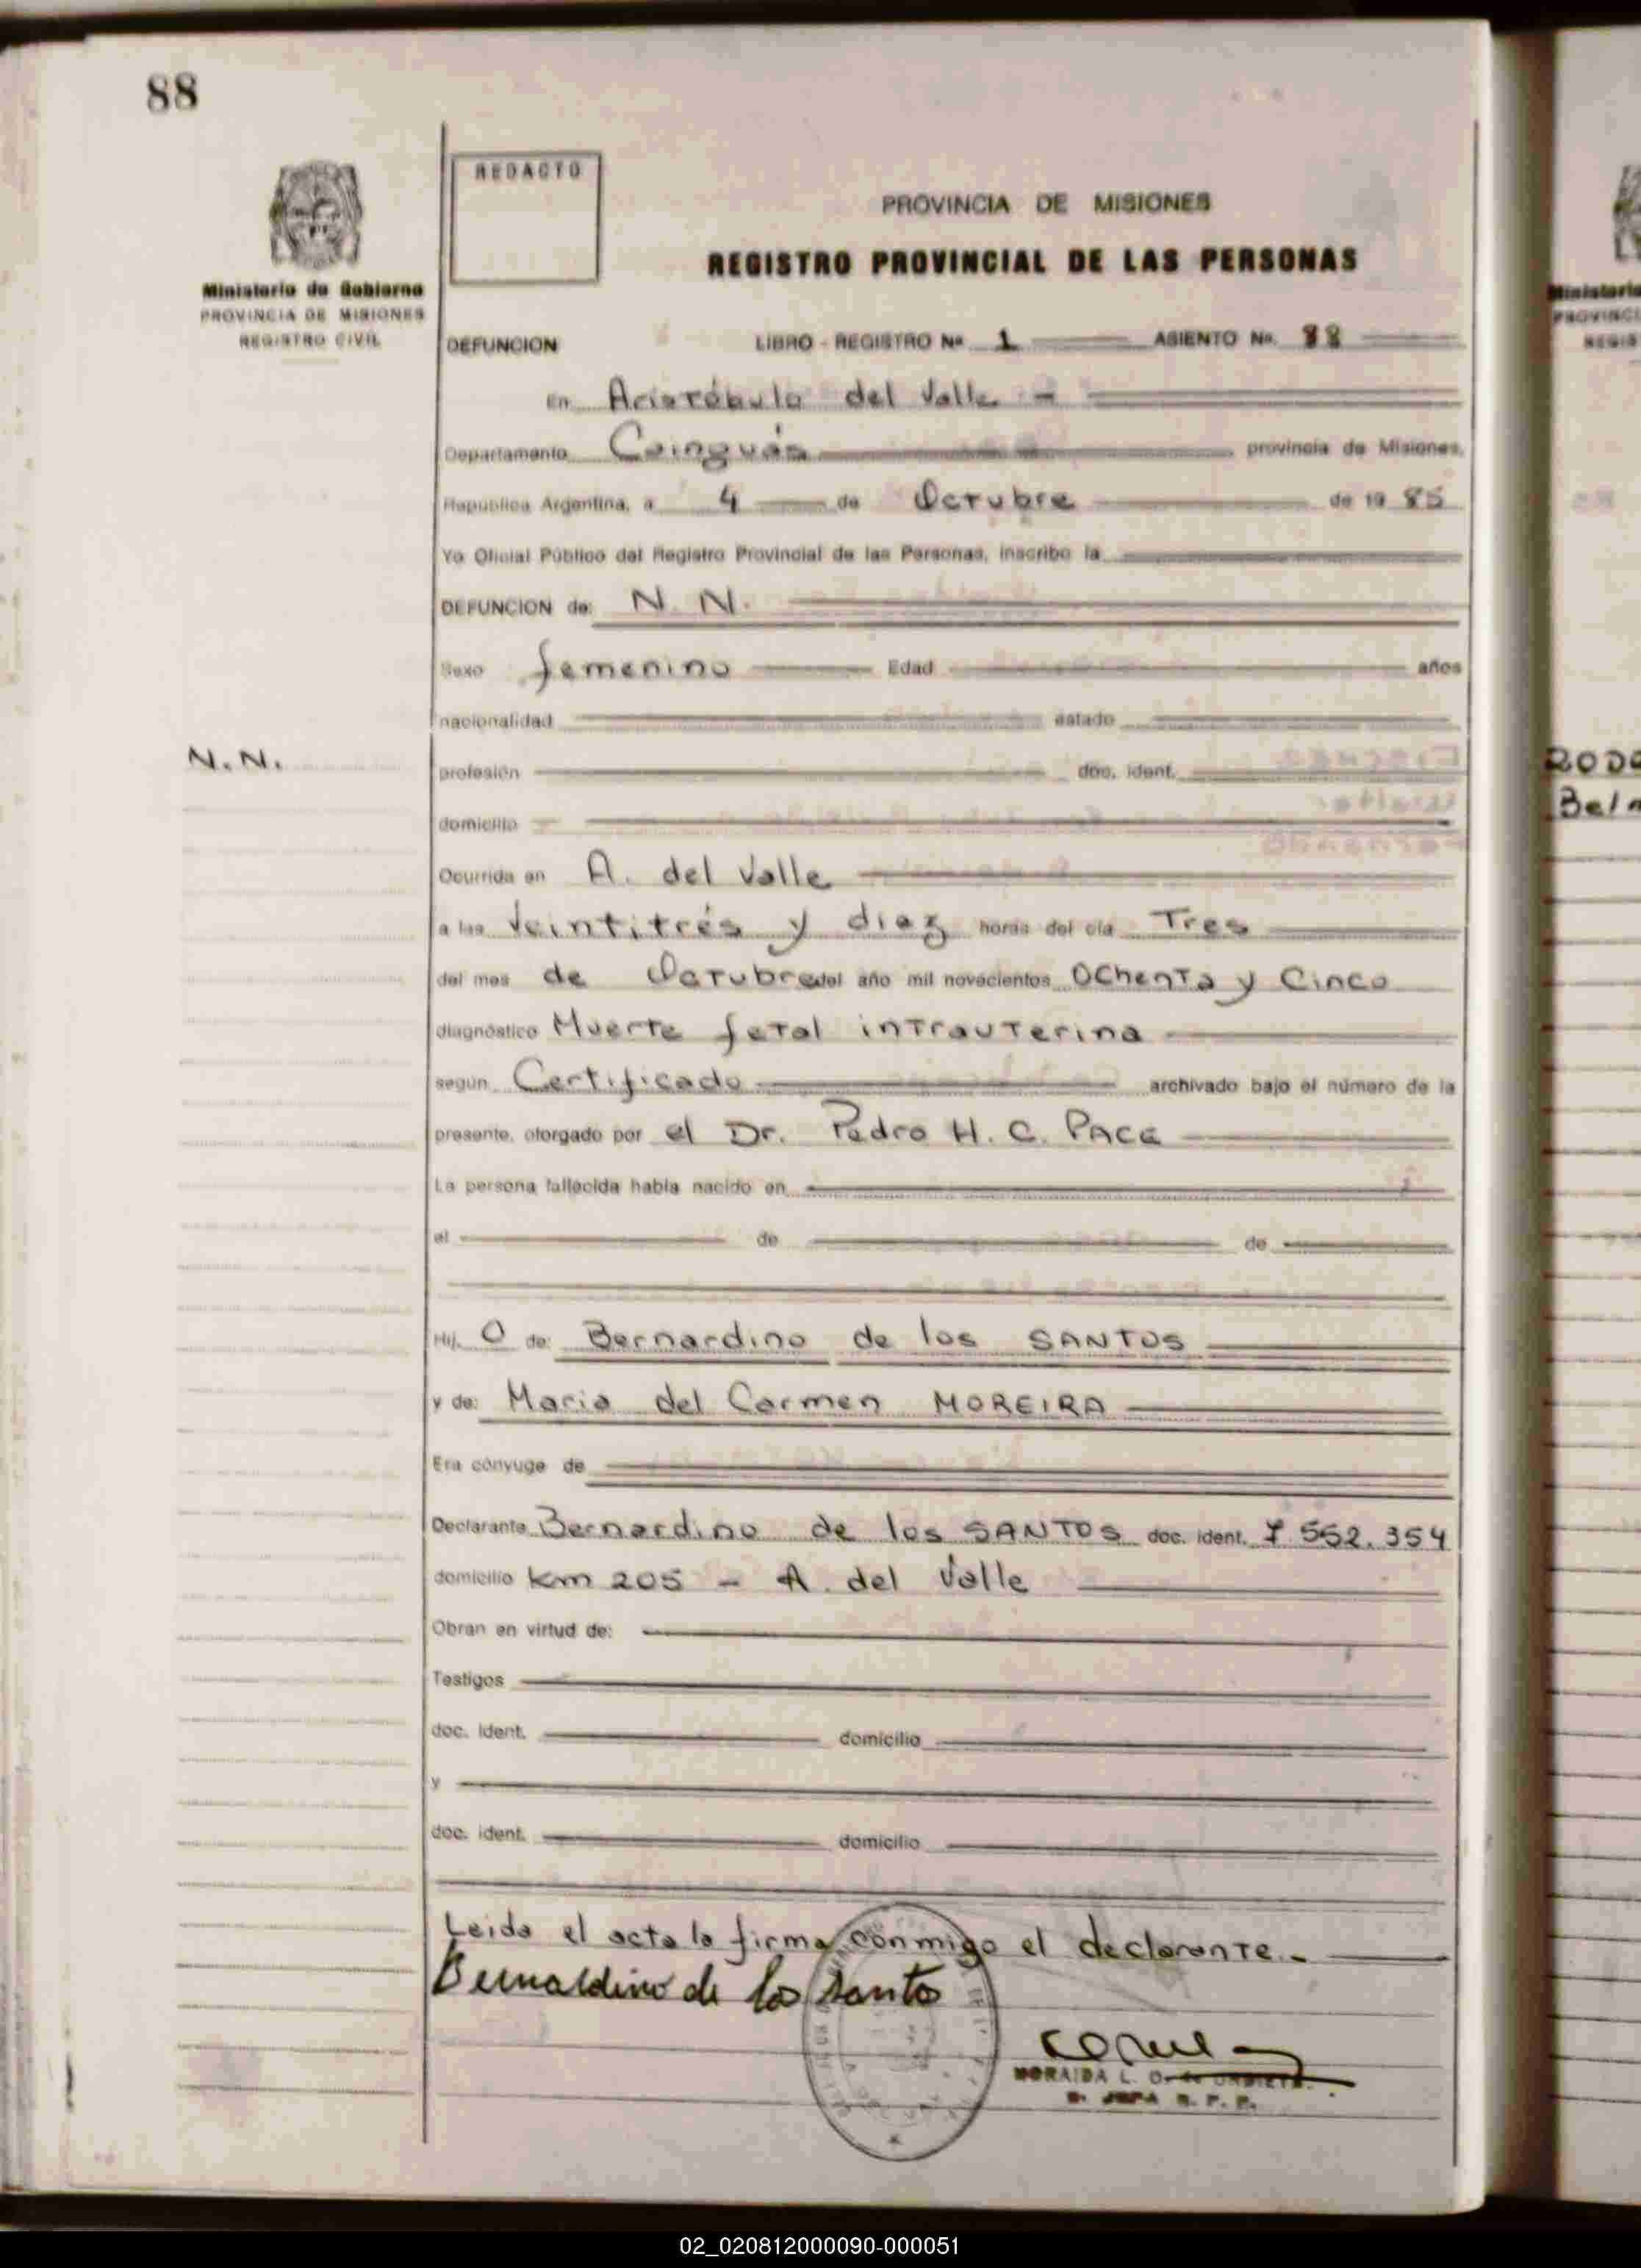 88
REDACTO
PROVINCIA DE MISIONES
REGISTRO PROVINCIAL DE LAS PERSONAS
Ministerio de Gobierno
PROVINCIA DE MISIONES
REGISTRO CIVIL
DEFUNCION LIBRO - REGISTRO Nº 1 ASIENTO No. 88
En Aristóbulo del Valle -
Departamento Cainguás provincia de Misiones,
República Argentina, a 4 de Octubre de 19 85
Yo Oficial Público del Registro Provincial de las Personas, inscribo la
DEFUNCION de: N. N.
Sexo femenino Edad años
nacionalidad estado
N. N.
profesión doc. ident.
domicilio
Ocurrida en A. del Valle
a las Veintitrés y diez horas del día Tres
del mes de Octubre del año mil novecientos Ochenta y Cinco
diagnóstico Muerte fetal intrauterina
según Certificado archivado bajo el número de la
presente, otorgado por el Dr. Pedro H. C. PACE
La persona fallecida había nacido en
el de de
Hij O de: Bernardino de los SANTOS
y de: Maria del Carmen MOREIRA
Era cónyuge de
Declarante Bernardino de los SANTOS doc. ident. 7.552.354
domicilio km 205 - A. del Valle
Obran en virtud de:
Testigos
doc. ident. domicilio
y
doc. ident. domicilio
Leida el acta la firma conmigo el declarante.-
Bernaldino de los santo
MORAIDA L. O. de
JEFA R. P. P.
Ministerio
PROVINCI
REGIS
RODR
Bel
02_020812000090-000051